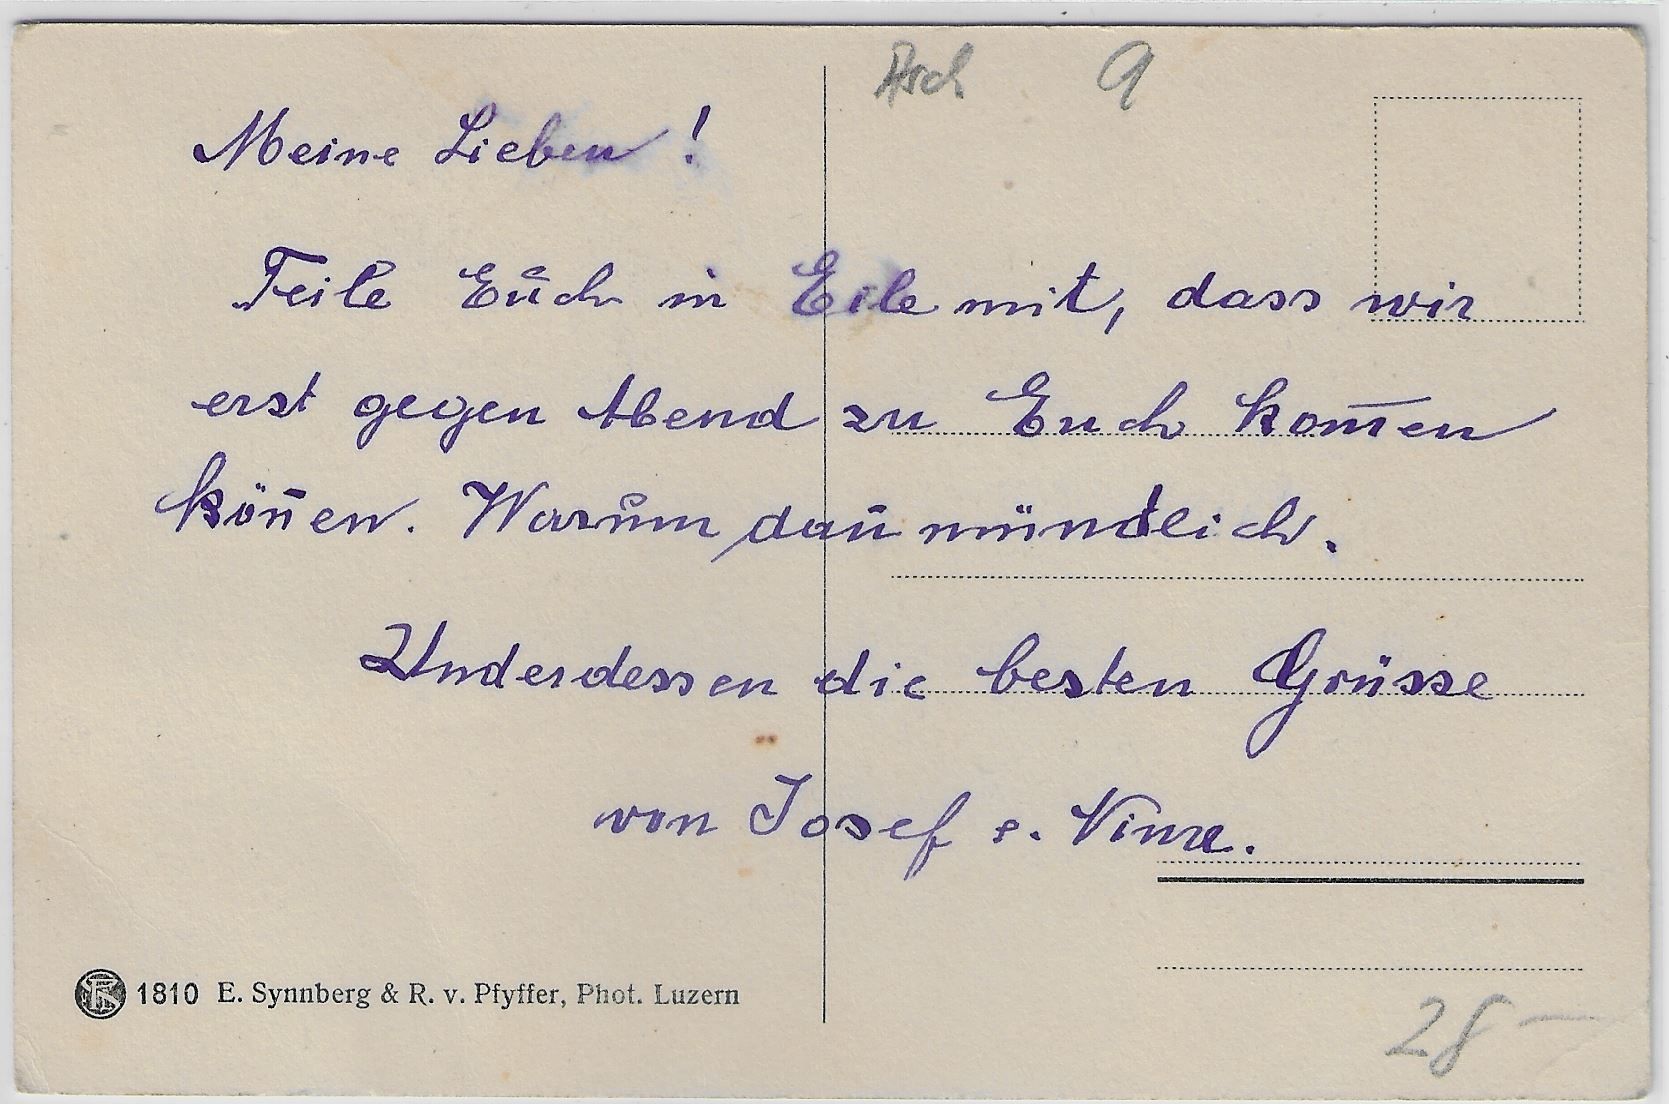 Arch 9
Meine Lieben !
Teile Euch in Eile mit, dass wir
erst gegen Abend zu Euch kom̅en
kön̅en. Warum dan̅ mündlich.
Underdessen die besten Grüsse
von Josef
1810 E. Synnberg & R. v. Pfyffer, Phot. Luzern
28 –